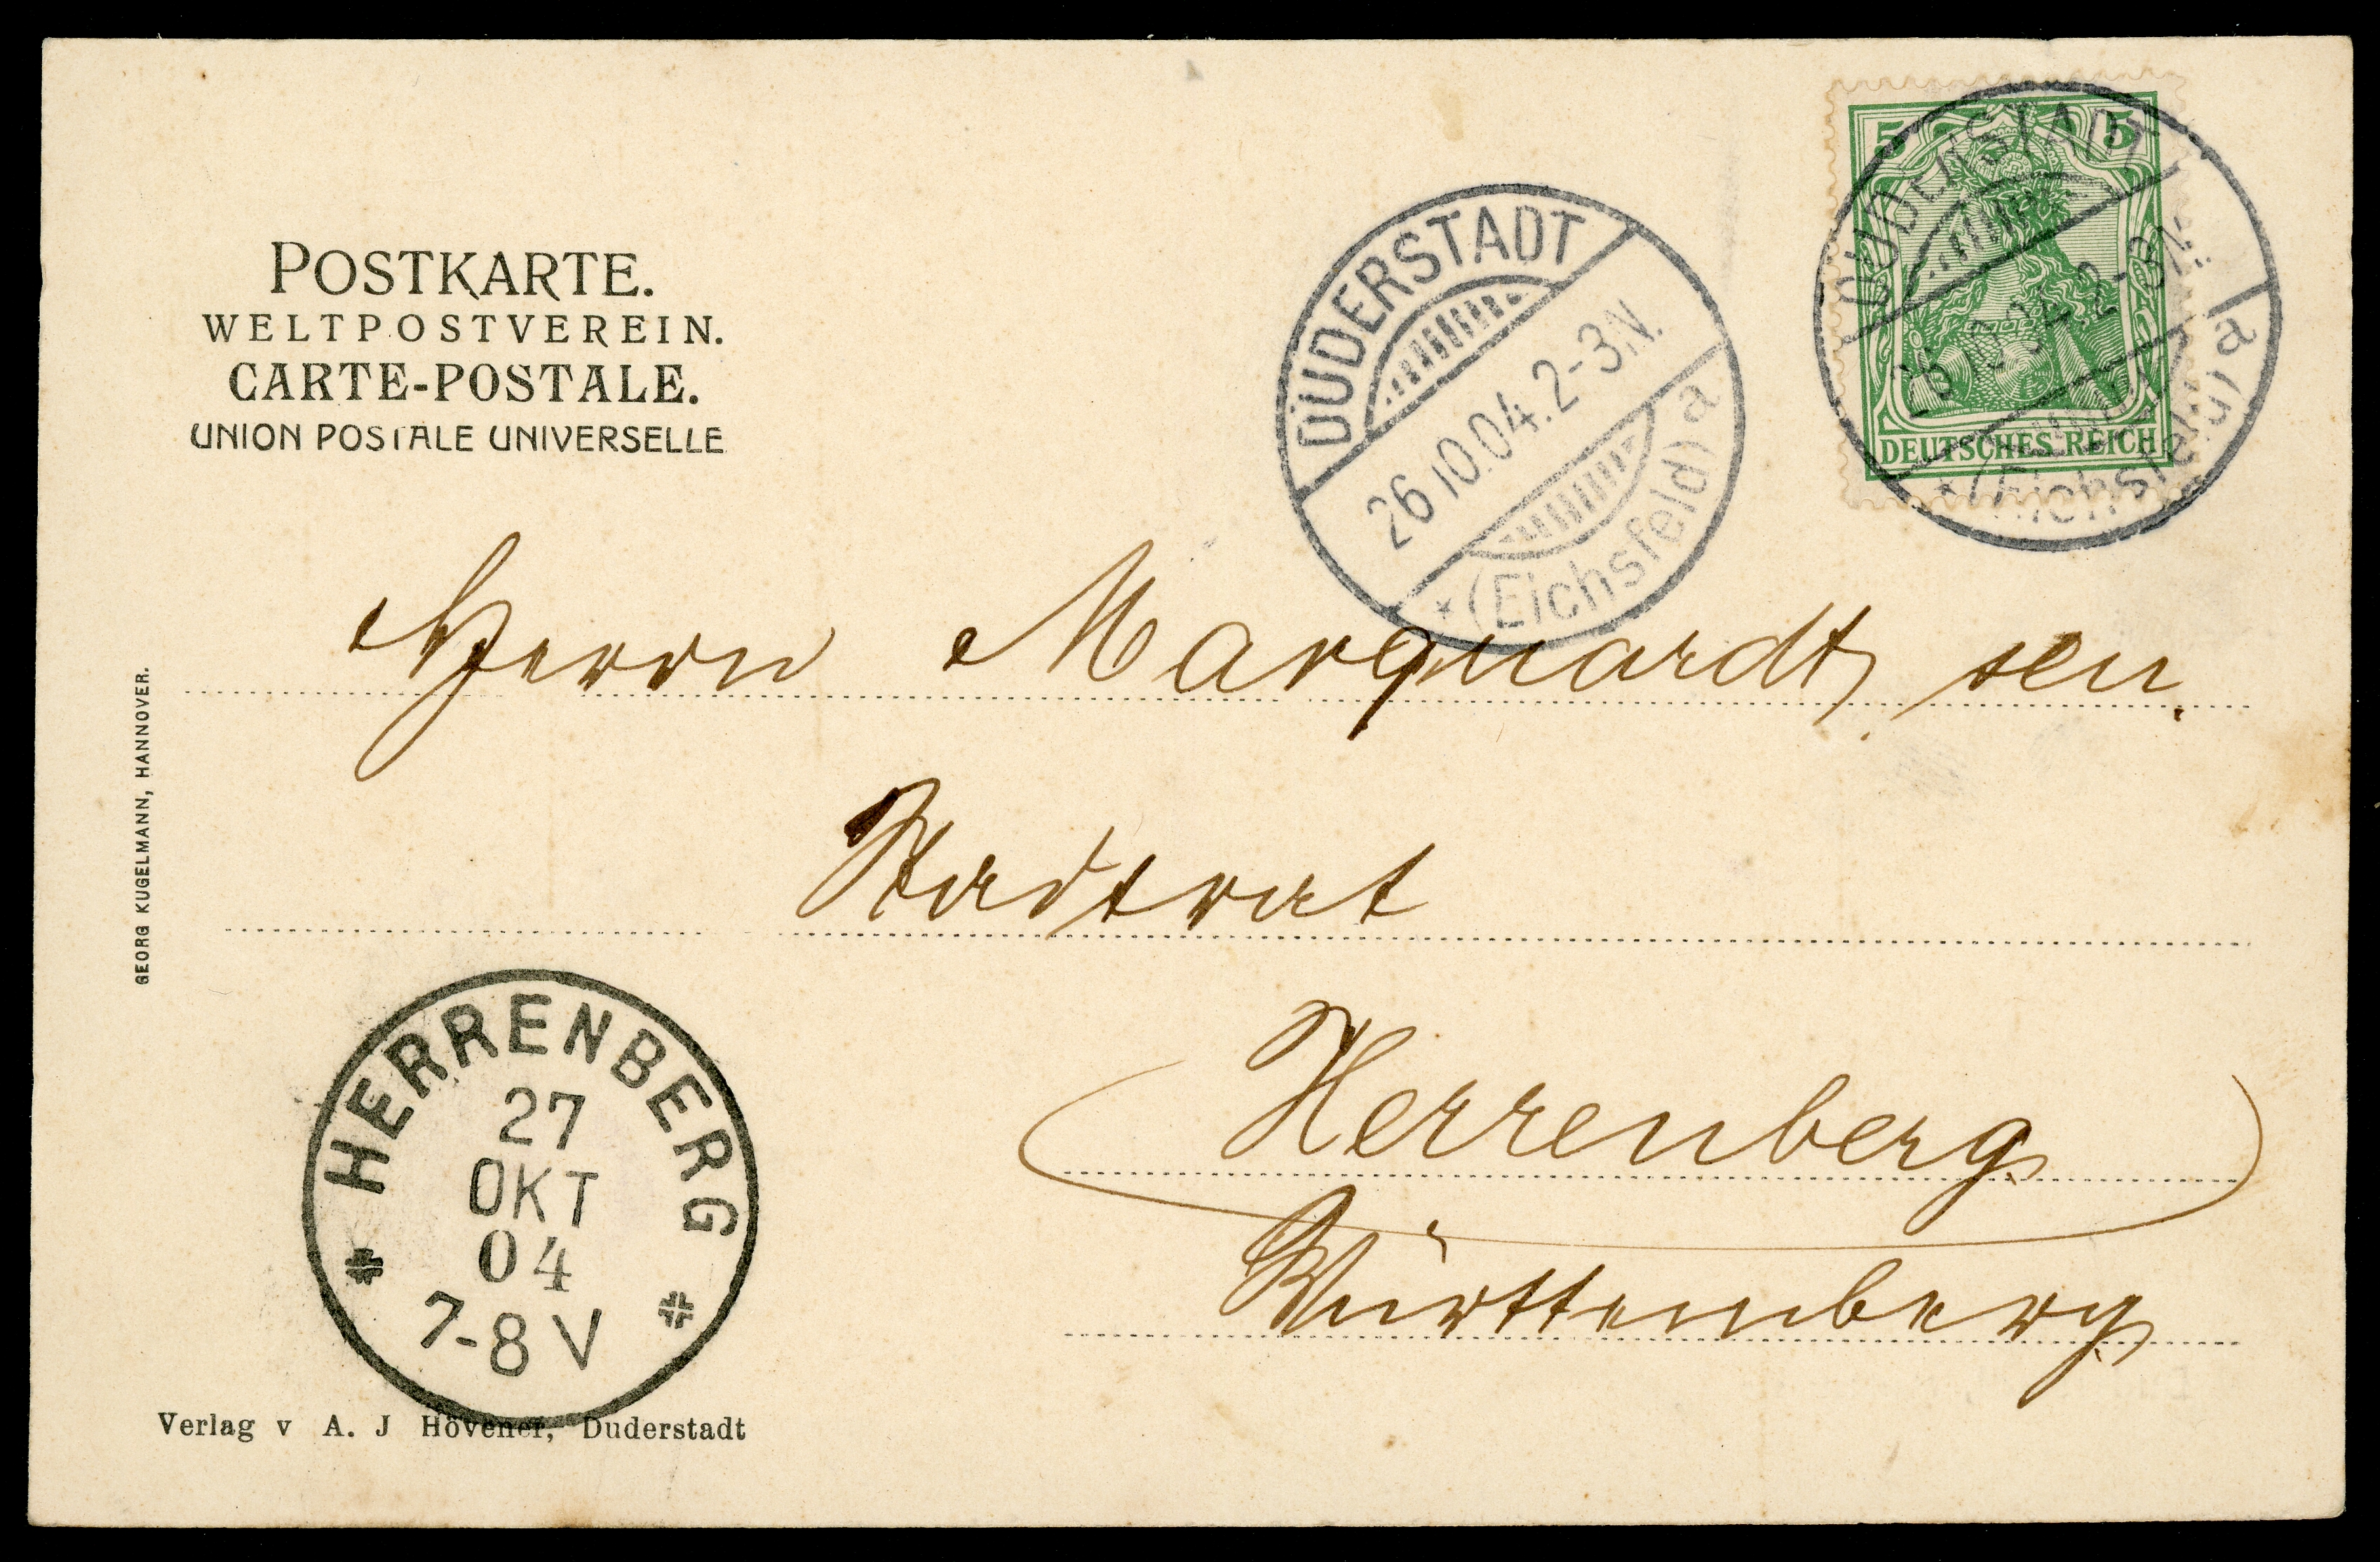 POSTKARTE.
WELTPOSTVEREIN.
CARTE-POSTALE.
UNION POSTALE UNIVERSELLE
DUDERSTADT
26.10.04.2-3N.
*(Eichsfeld) a
5 5
DEUTSCHES REICH
DUDERSTADT
26.10.04.2-3N.
*(Eichsfeld) a
Herrn Marquardt, sen.
Stadtrat
Herrenberg
Württemberg
GEORG KUGELMANN, HANNOVER.
HERRENBERG
27
OKT
04
7-8 V
Verlag v A. J Hövener, Duderstadt